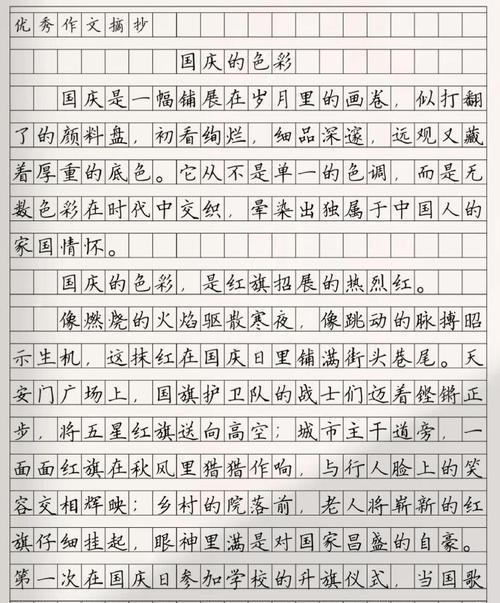 优秀作文摘抄
国庆的色彩
国庆是一幅铺展在岁月里的画卷，似打翻
了的颜料盘，初看绚烂，细品深邃，远观又藏
着厚重的底色。它从不是单一的色调，而是无
数色彩在时代中交织，晕染出独属于中国人的
家国情怀。
国庆的色彩，是红旗招展的热烈红。
像燃烧的火焰驱散寒夜，像跳动的脉搏昭
示生机，这抹红在国庆日里铺满街头巷尾。天
安门广场上，国旗护卫队的战士们迈着铿锵正
步，将五星红旗送向高空；城市主干道旁，一
面面红旗在秋风里猎猎作响，与行人脸上的笑
容交相辉映；乡村的院落前，老人将崭新的红
旗仔细挂起，眼神里满是对国家昌盛的自豪。
第一次在国庆日参加学校的升旗仪式，当国歌